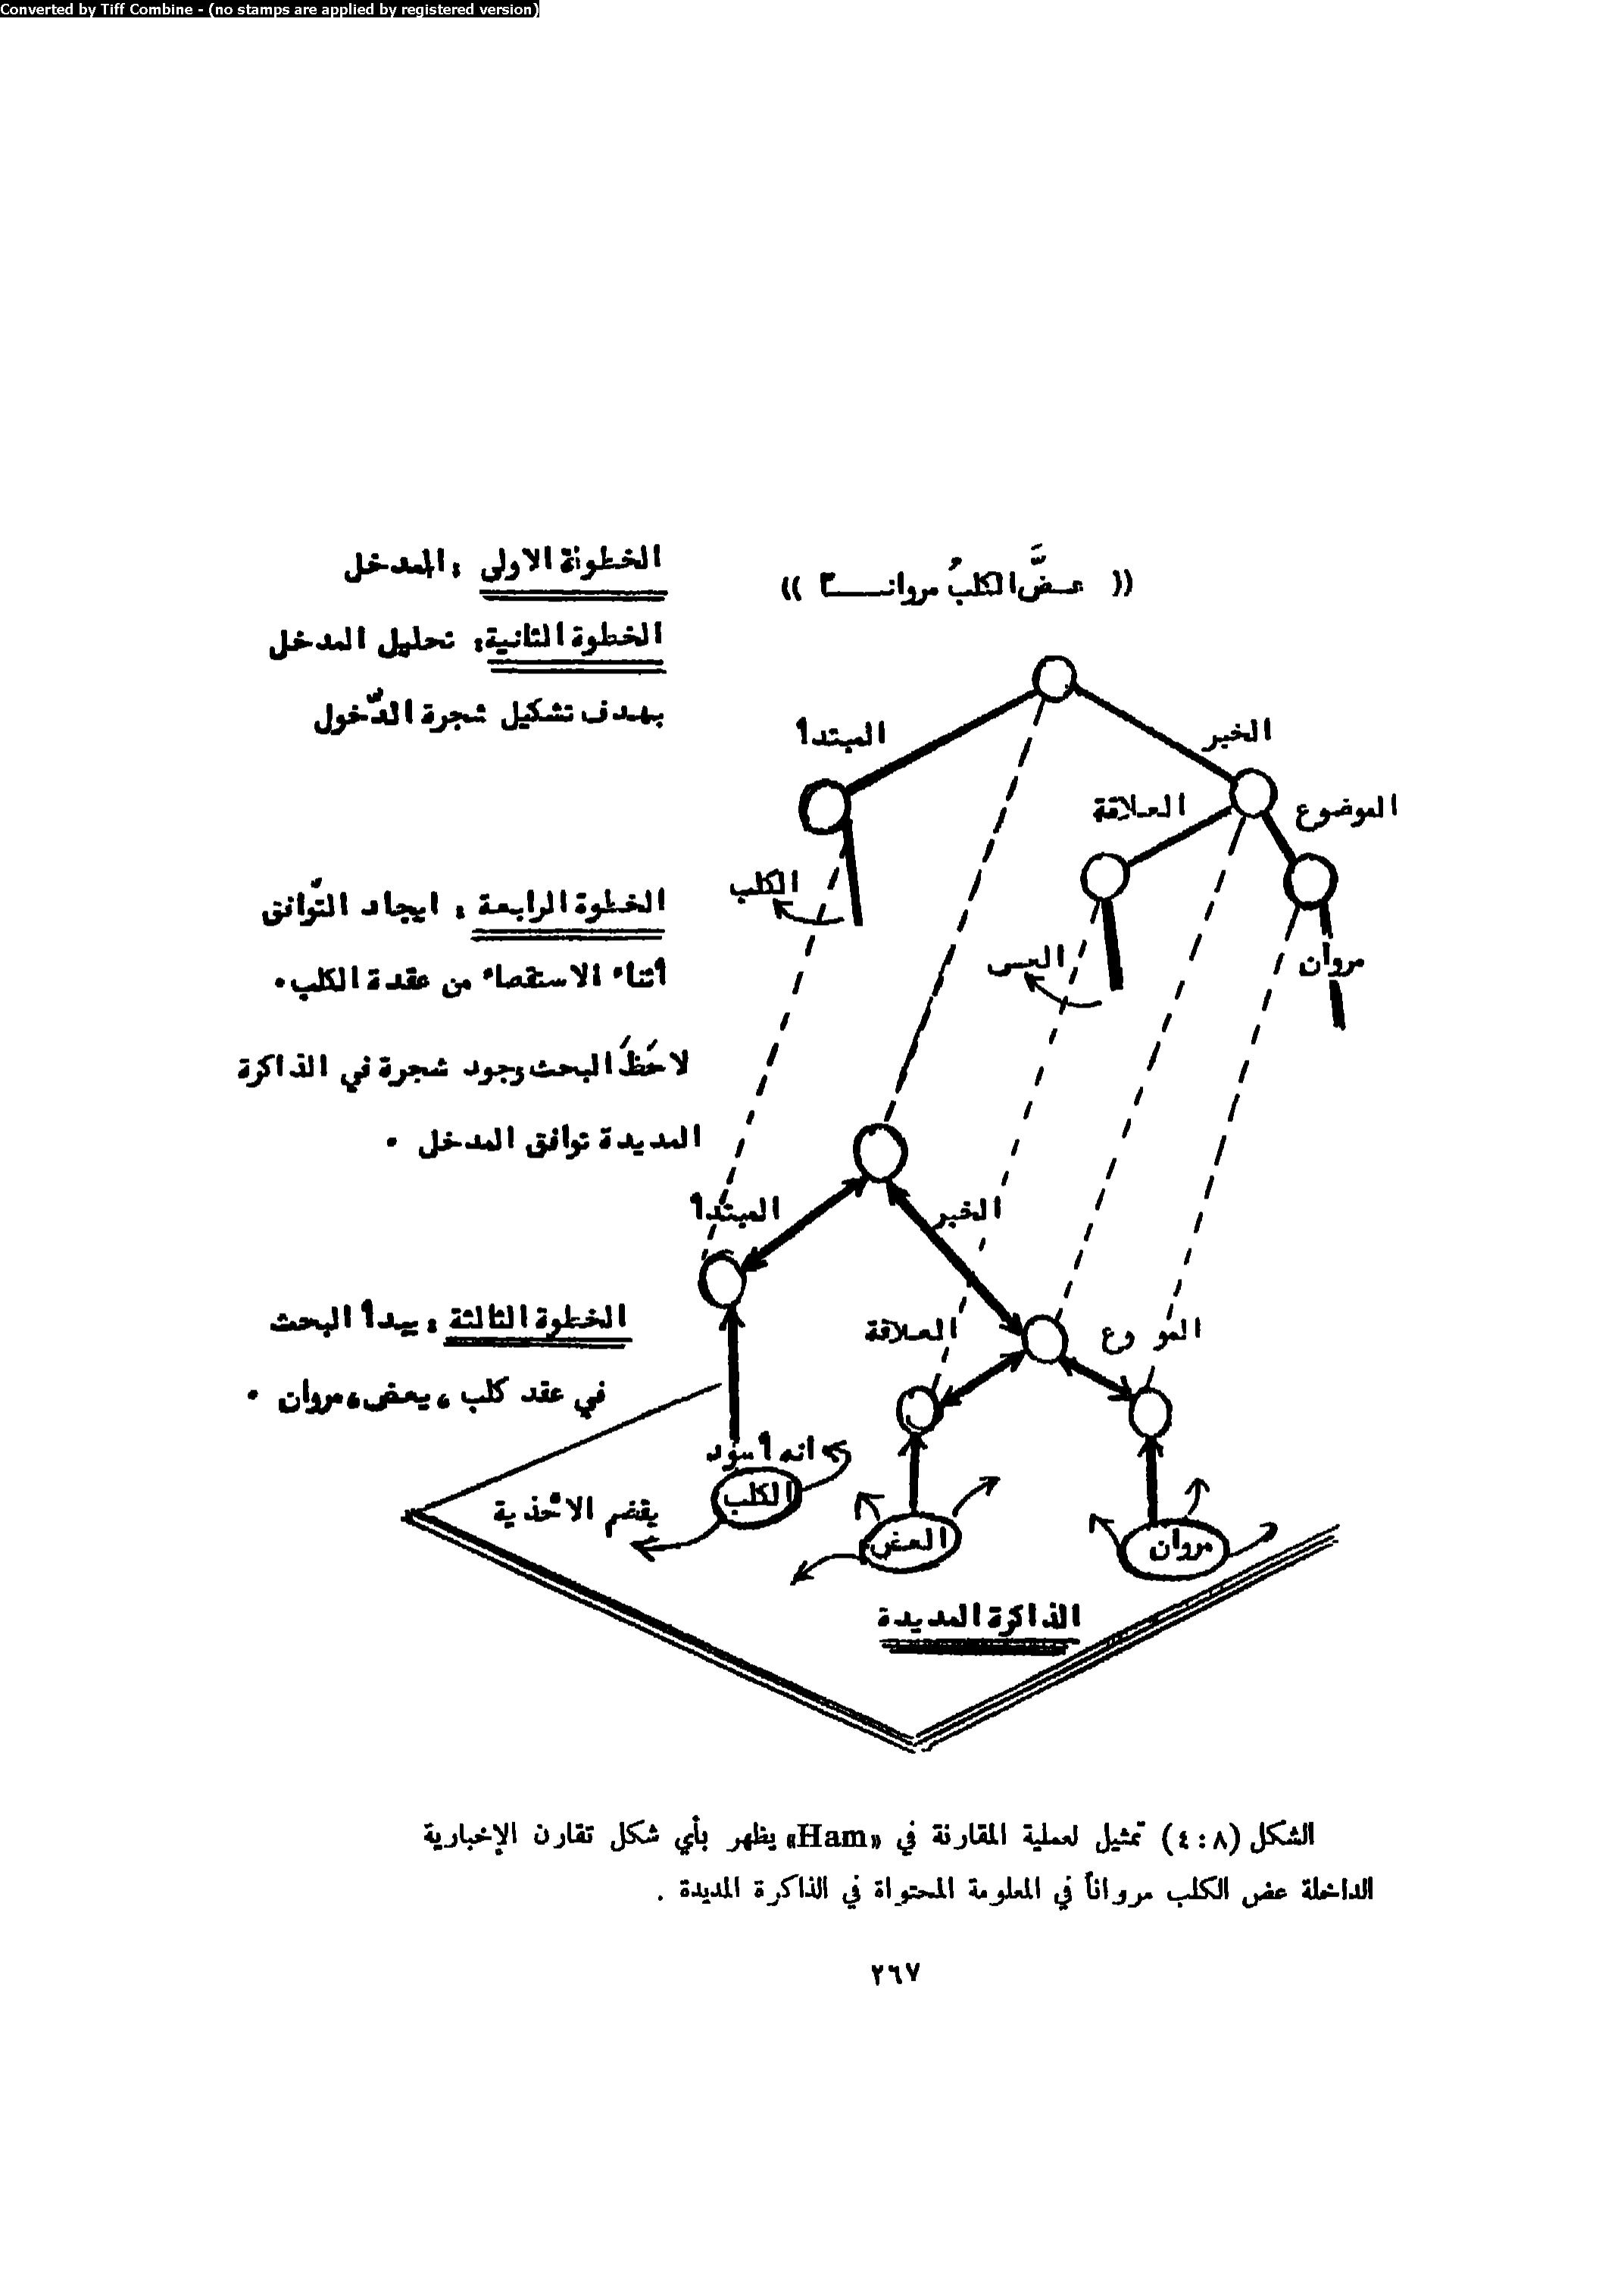 Converted by Tiff Combine - (no stamps are applied by registered version)
(( عـضَّ الكلبُ مروانــاً ))
الخطوة الاولى : المدخل
الخطوة الثانية : تحليل المدخل
بهدف تشكيل شجرة الدّخول
المبتدأ
الخبر
العلاقة
الموضوع
الكلب
مروان
الخطوة الرابعة : ايجاد التّوافق
أثناء الاستقصاء من عقدة الكلب .
لاحَظَ البحث وجود شجرة في الذاكرة
المديدة توافق المدخل .
المبتدأ
الخبر
العلاقة
المو وع
الخطوة الثالثة : يبدأ البحث
في عقد كلب ، يعض ، مروان .
انه أسود
الكلب
يقضم الأغذية
العض
مروان
الذاكرة المديدة
الشكل (٤:٨) تمثيل لعملية المقارنة في «Ham» يظهر بأي شكل تقارن الإخبارية
الداخلة عض الكلب مرواناً في المعلومة المحتواة في الذاكرة المديدة .
٢٦٧